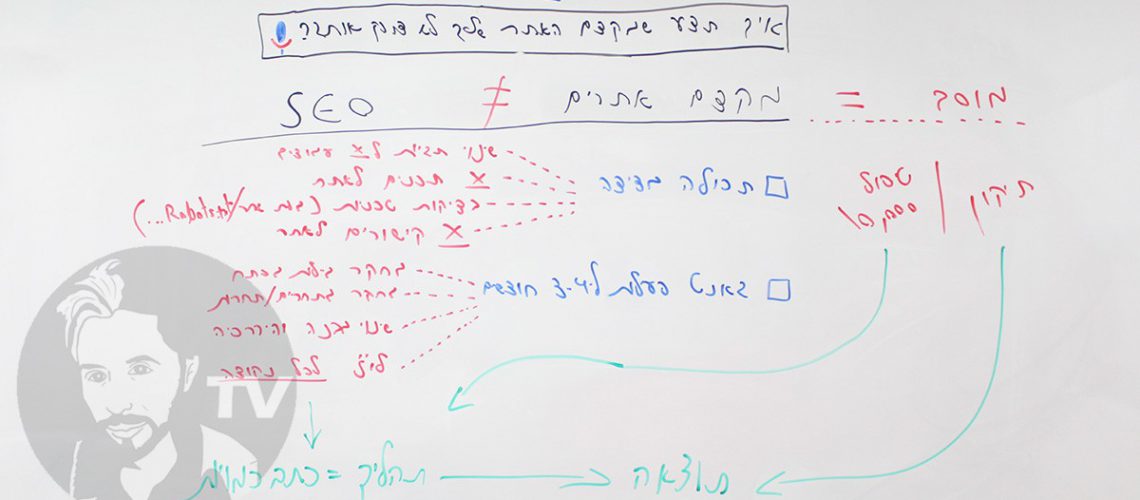 איך תדע שמקדם האתר שלך לא צריך אותך?
מוסך = מקדם אתרים ≠ SEO
תיקון | טיפול
תכולה מדידה
שינוי תגיות ל X עמודים
X תכנים לאתר
בדיקות טכניות (מפת אתר/Robots.txt...)
X קישורים לאתר
גאנט פעולות ל 3-4 חודשים
מחקר מילות מפתח
מחקר מתחרים/תחרות
שינוי מבנה והיררכיה
לו"ז לכל נקודה
כתב כמויות = תהליך
תוצאה
TV